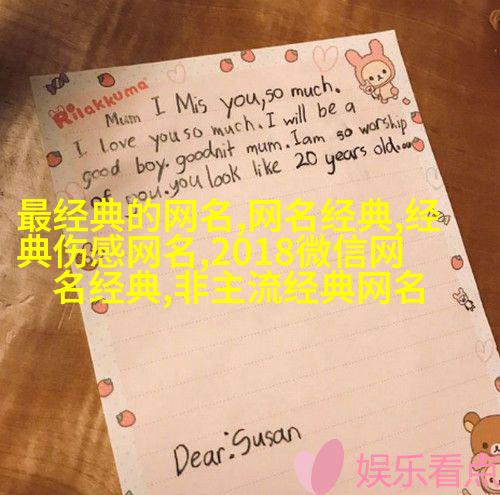 Rilakkuma
Mum I Mis you,so much.
I love you so much. I will be a
good boy. goodnit mum. I am so worship
of you. you look like 20 years old.
最经典的网名,网名经典,经
典伤感网名,2018微信网
名经典,非主流经典网名
Dear:Susan
娱乐看点